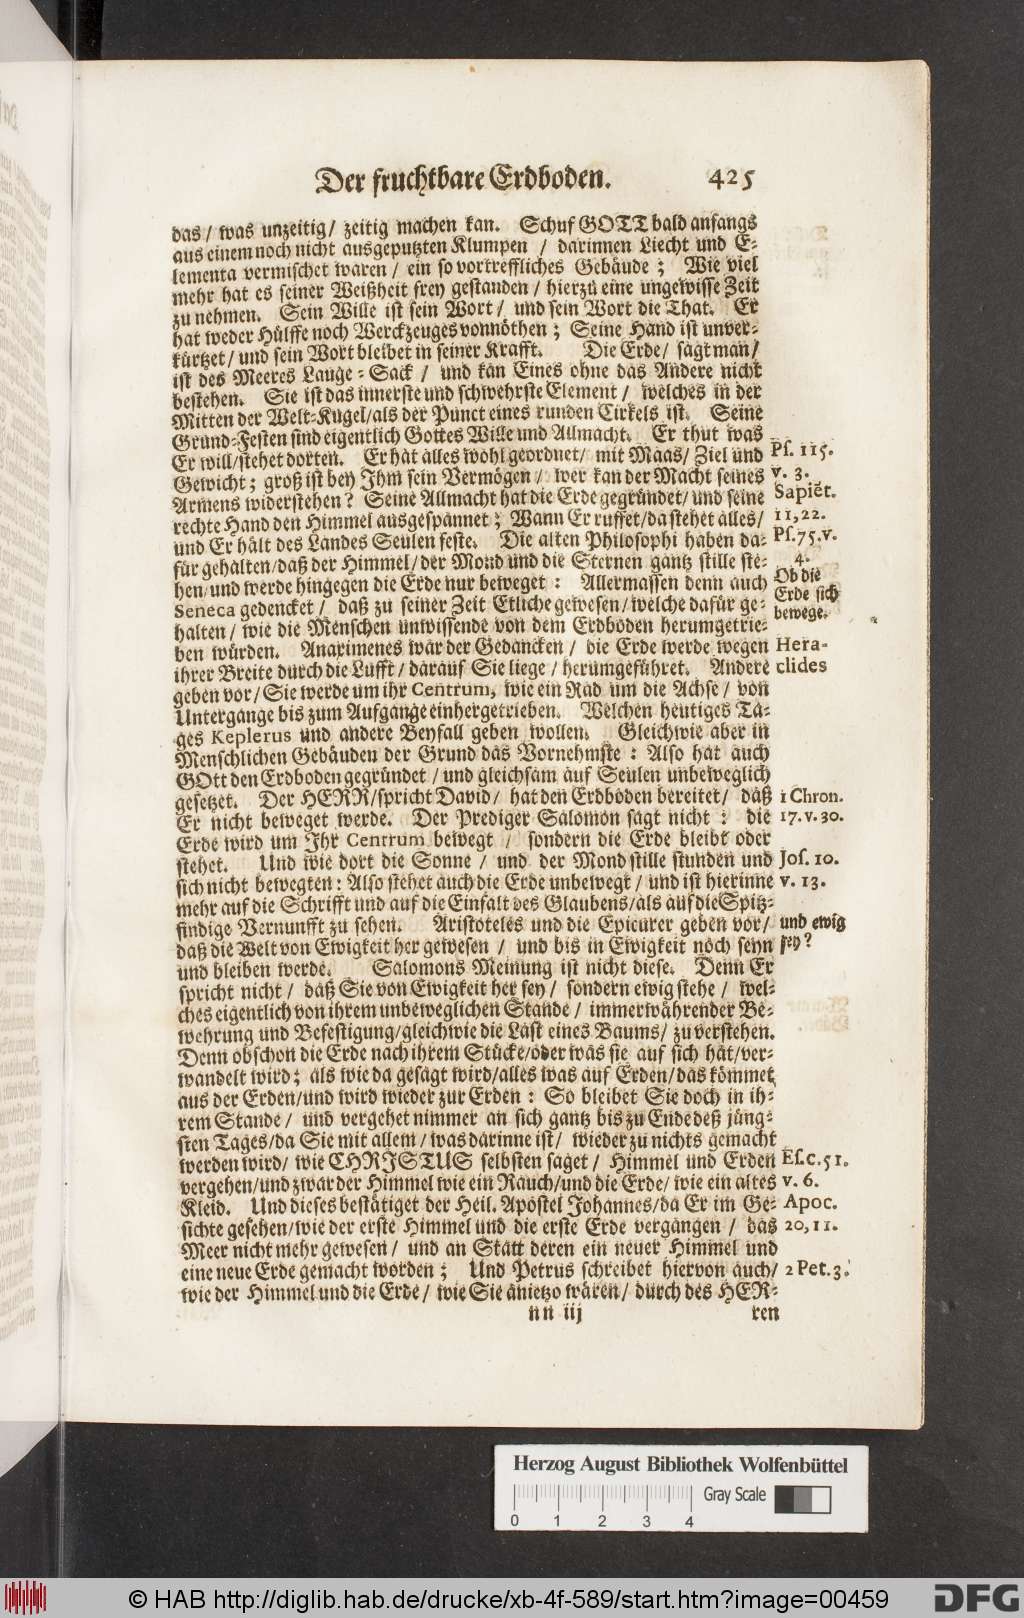 Der fruchtbare Erdboden. 425
das/ was unzeitig/ zeitig machen kan. Schuf GOTT bald anfangs
aus einem noch nicht ausgeputzten Klumpen / darinnen Liecht und E-
lementa vermischet waren/ ein so vortreffliches Gebäude; Wie viel
mehr hat es seiner Weißheit frey gestanden/ hierzu eine ungewisse Zeit
zu nehmen. Sein Wille ist sein Wort/ und sein Wort die That. Er
hat weder Hülffe noch Werckzeuges vonnöthen; Seine Hand ist unver-
kürtzet/ und sein Wort bleibet in seiner Krafft. Die Erde/ sagt man/
ist des Meeres Lauge-Sack / und kan Eines ohne das Andere nicht
bestehen. Sie ist das innerste und schwehrste Element / welches in der
Mitten der Welt-Kugel/als der Punct eines runden Cirkels ist. Seine
Grund-Festen sind eigentlich Gottes Wille und Allmacht. Er thut was
Er will/stehet dorten. Er hat alles wohl geordnet/ mit Maas/ Ziel und
Gewicht; groß ist bey Jhm sein Vermögen/ wer kan der Macht seines
Armens widerstehen? Seine Allmacht hat die Erde gegründet/ und seine
rechte Hand den Himmel ausgespannet; Wann Er ruffet/da stehet alles/
und Er hält des Landes Seulen feste. Die alten Philosophi haben da-
für gehalten/daß der Himmel/der Mond und die Sternen gantz stille ste-
hen/und werde hingegen die Erde nur beweget: Allermassen denn auch
Seneca gedencket/ daß zu seiner Zeit Etliche gewesen/welche dafür ge-
halten/ wie die Menschen unwissende von dem Erdboden herumgetrie-
ben würden. Anaximenes war der Gedancken/ die Erde werde wegen
ihrer Breite durch die Lufft/darauf Sie liege/herumgeführet. Andere
geben vor/Sie werde um ihr Centrum, wie ein Rad um die Achse/ von
Untergange bis zum Aufgange einhergetrieben. Welchen heutiges Ta-
ges Keplerus und andere Beyfall geben wollen. Gleichwie aber in
Menschlichen Gebäuden der Grund das Vornehmste: Also hat auch
GOtt den Erdboden gegründet/ und gleichsam auf Seulen unbeweglich
gesetzet. Der HERR/spricht David/ hat den Erdboden bereitet/ daß
Er nicht beweget werde. Der Prediger Salomon sagt nicht: die
Erde wird um Jhr Centrum bewegt / sondern die Erde bleibt oder
stehet. Und wie dort die Sonne / und der Mond stille stunden und
sich nicht bewegten: Also stehet auch die Erde unbewegt/ und ist hierinne
mehr auf die Schrifft und auf die Einfalt des Glaubens/als auf die Spitz-
findige Vernunfft zu sehen. Aristoteles und die Epicurer geben vor/
daß die Welt von Ewigkeit her gewesen / und bis in Ewigkeit noch seyn
und bleiben werde. Salomons Meinung ist nicht diese. Denn Er
spricht nicht/ daß Sie von Ewigkeit her sey/ sondern ewig stehe/ wel-
ches eigentlich von ihrem unbeweglichen Stande/ immerwährender Be-
wehrung und Befestigung/gleichwie die Last eines Baums/ zu verstehen.
Denn obschon die Erde nach ihrem Stücke/oder was sie auf sich hat/ver-
wandelt wird; als wie da gesagt wird/alles was auf Erden/das kömmet
aus der Erden/und wird wieder zur Erden: So bleibet Sie doch in ih-
rem Stande/ und vergehet nimmer an sich gantz bis zu Ende deß jüng-
sten Tages/da Sie mit allem/was darinne ist/ wieder zu nichts gemacht
werden wird/ wie CHRISTUS selbsten saget/ Himmel und Erden
vergehen/und zwar der Himmel wie ein Rauch/und die Erde/wie ein altes
Kleid. Und dieses bestätiget der Heil. Apostel Johannes/da Er im Ge-
sichte gesehen/wie der erste Himmel und die erste Erde vergangen/ das
Meer nicht mehr gewesen/ und an Statt deren ein neuer Himmel und
eine neue Erde gemacht worden; Und Petrus schreibet hiervon auch/
wie der Himmel und die Erde/ wie Sie anietzo wären/ durch des HER-
nn iij ren
Ps. 115.
v. 3.
Sapiēt.
11,22.
Ps.75.v.
4.
Ob die
Erde sich
bewege.
Hera-
clides
1 Chron.
17. v. 30.
Jos. 10.
v. 13.
und ewig
sey?
Es.c.51.
v. 6.
Apoc.
20,11.
2 Pet.3.
Herzog August Bibliothek Wolfenbüttel
Gray Scale
0 1 2 3 4
© HAB http://diglib.hab.de/drucke/xb-4f-589/start.htm?image=00459
DFG